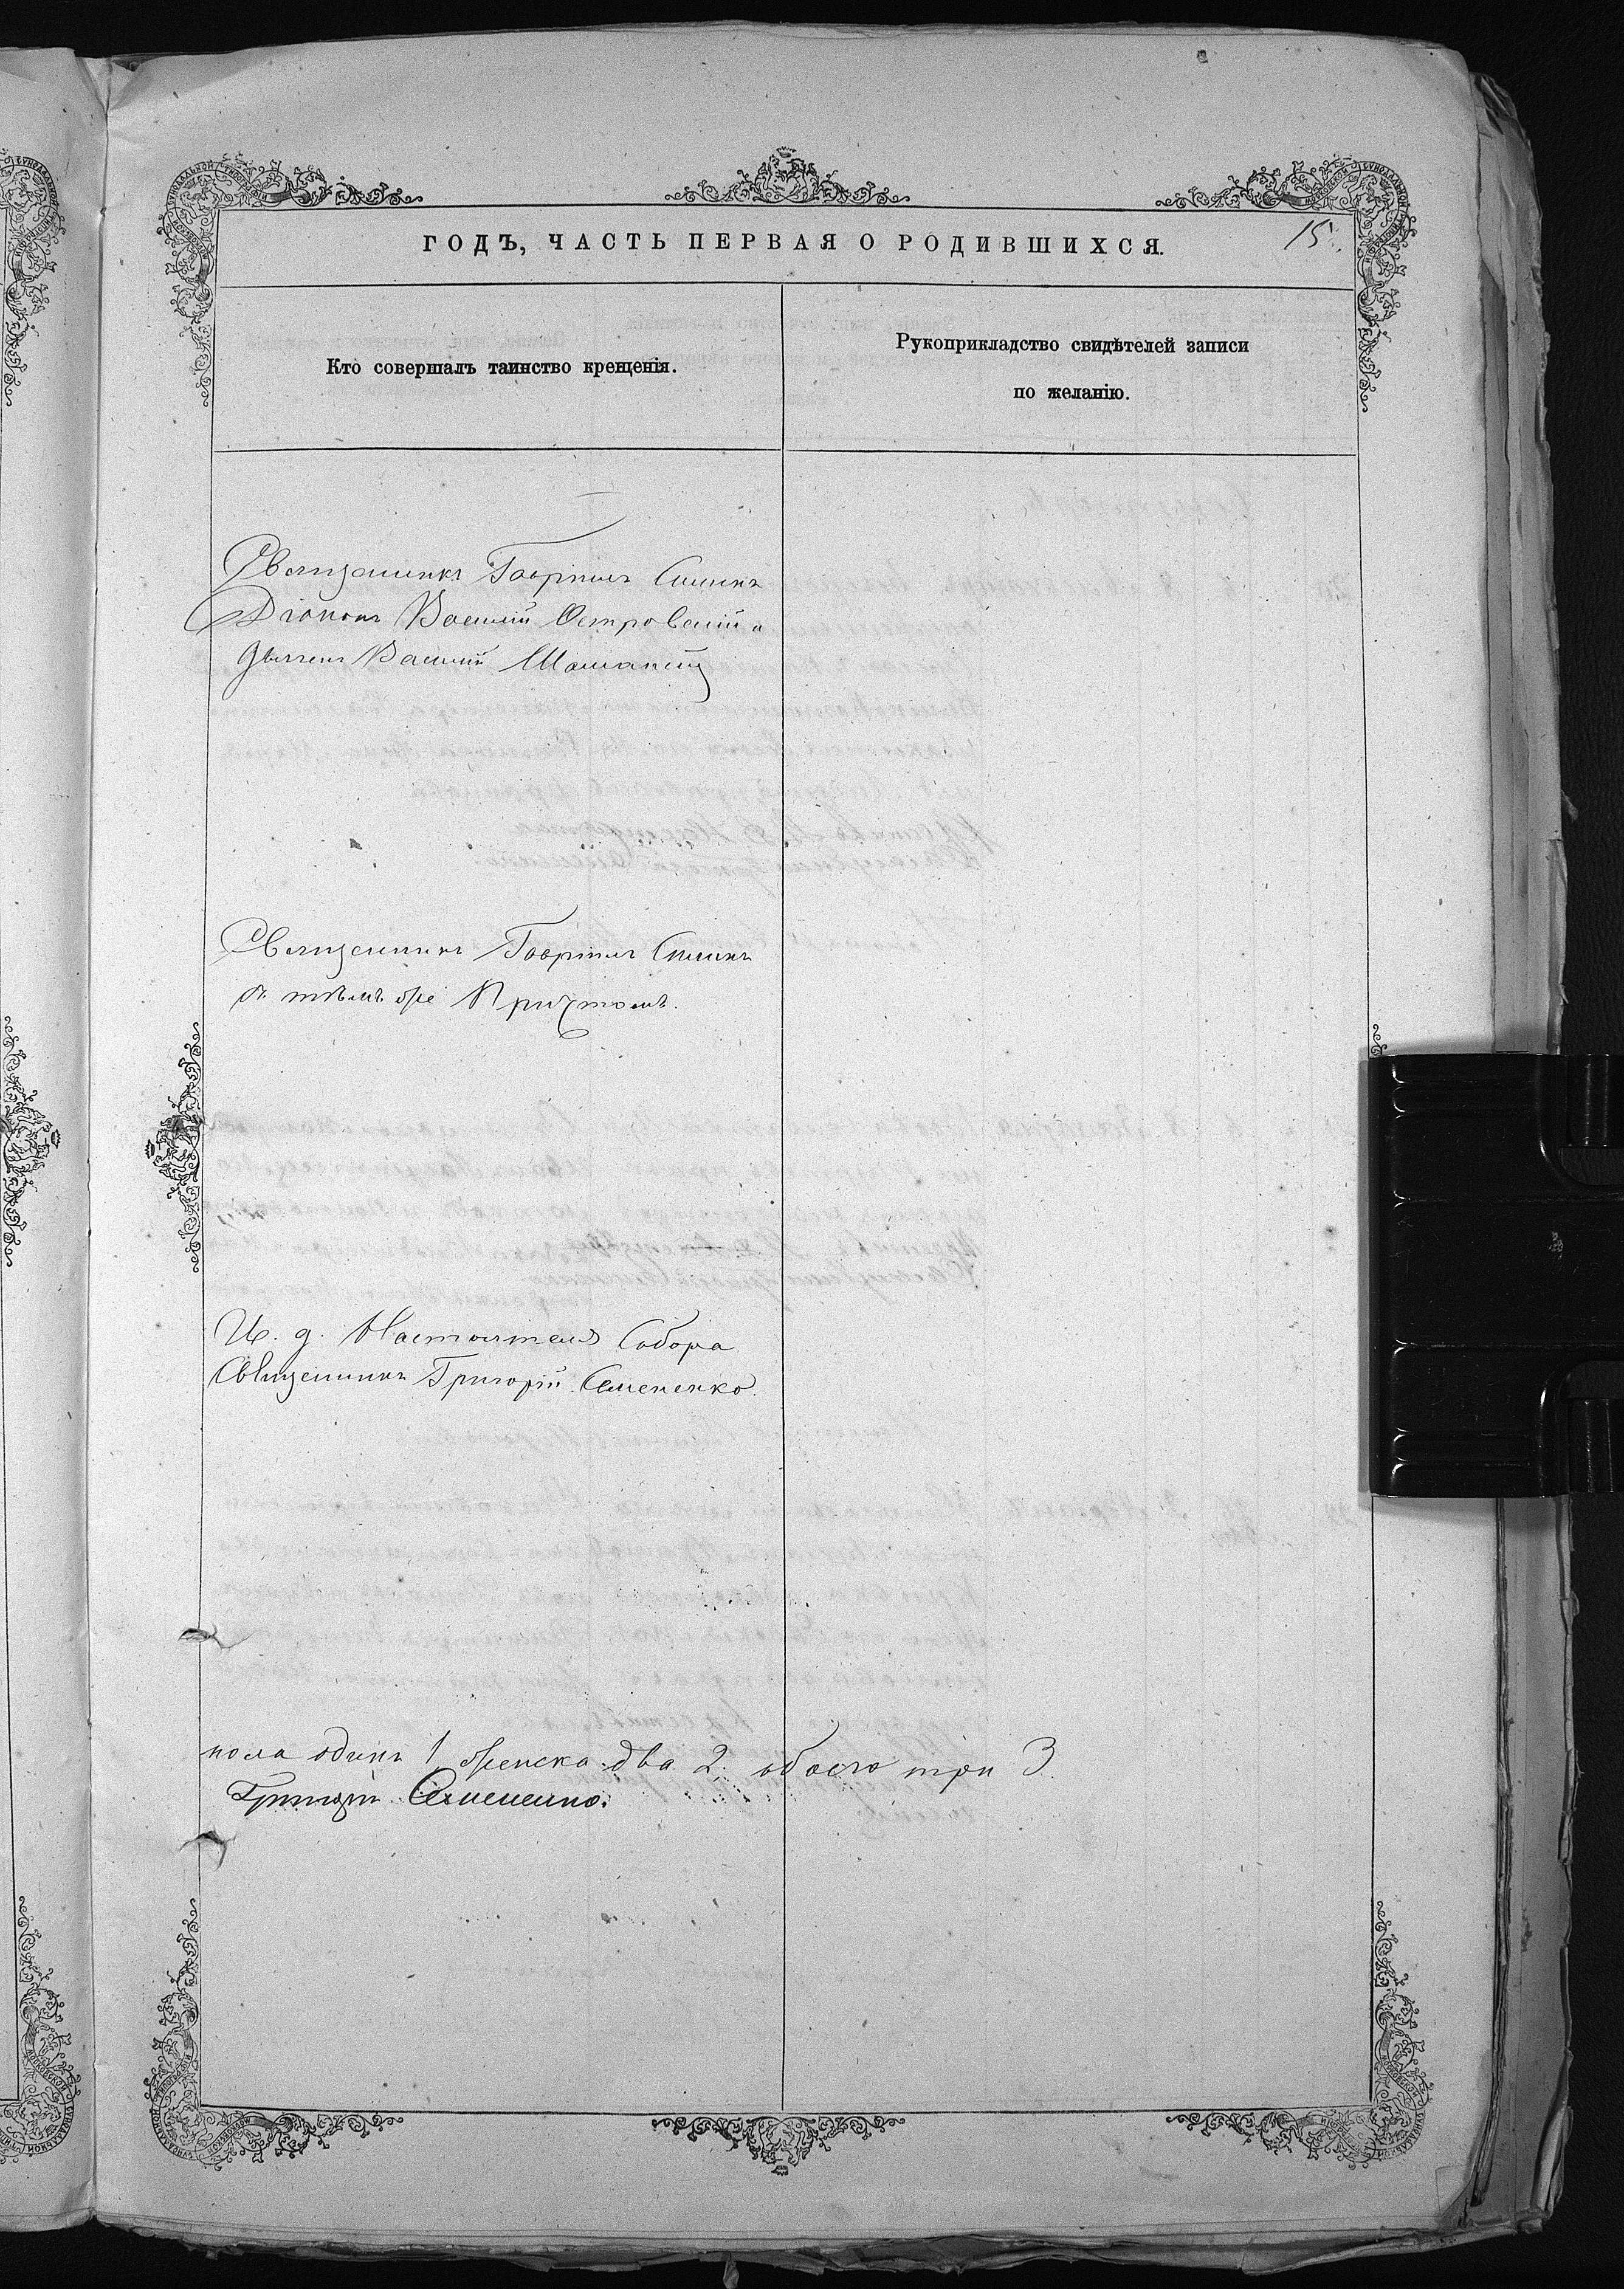 ГОДЪ, ЧАСТЬ ПЕРВАЯ О РОДИВШИХСЯ.
15.
Кто совершалъ таинство крещенія.
Рукоприкладство свидѣтелей записи
по желанію.
Священникъ Гавріилъ Синикъ
Діаконъ Василій Островскій и
Дьячекъ Василій
Священникъ Гавріилъ Синикъ
съ тѣмъ же Причтомъ.
И. д. Настоятеля Собора
Священникъ Григорій Семененко.
пола одинъ 1 женска два 2 обоего три 3
Григорій Семененко.